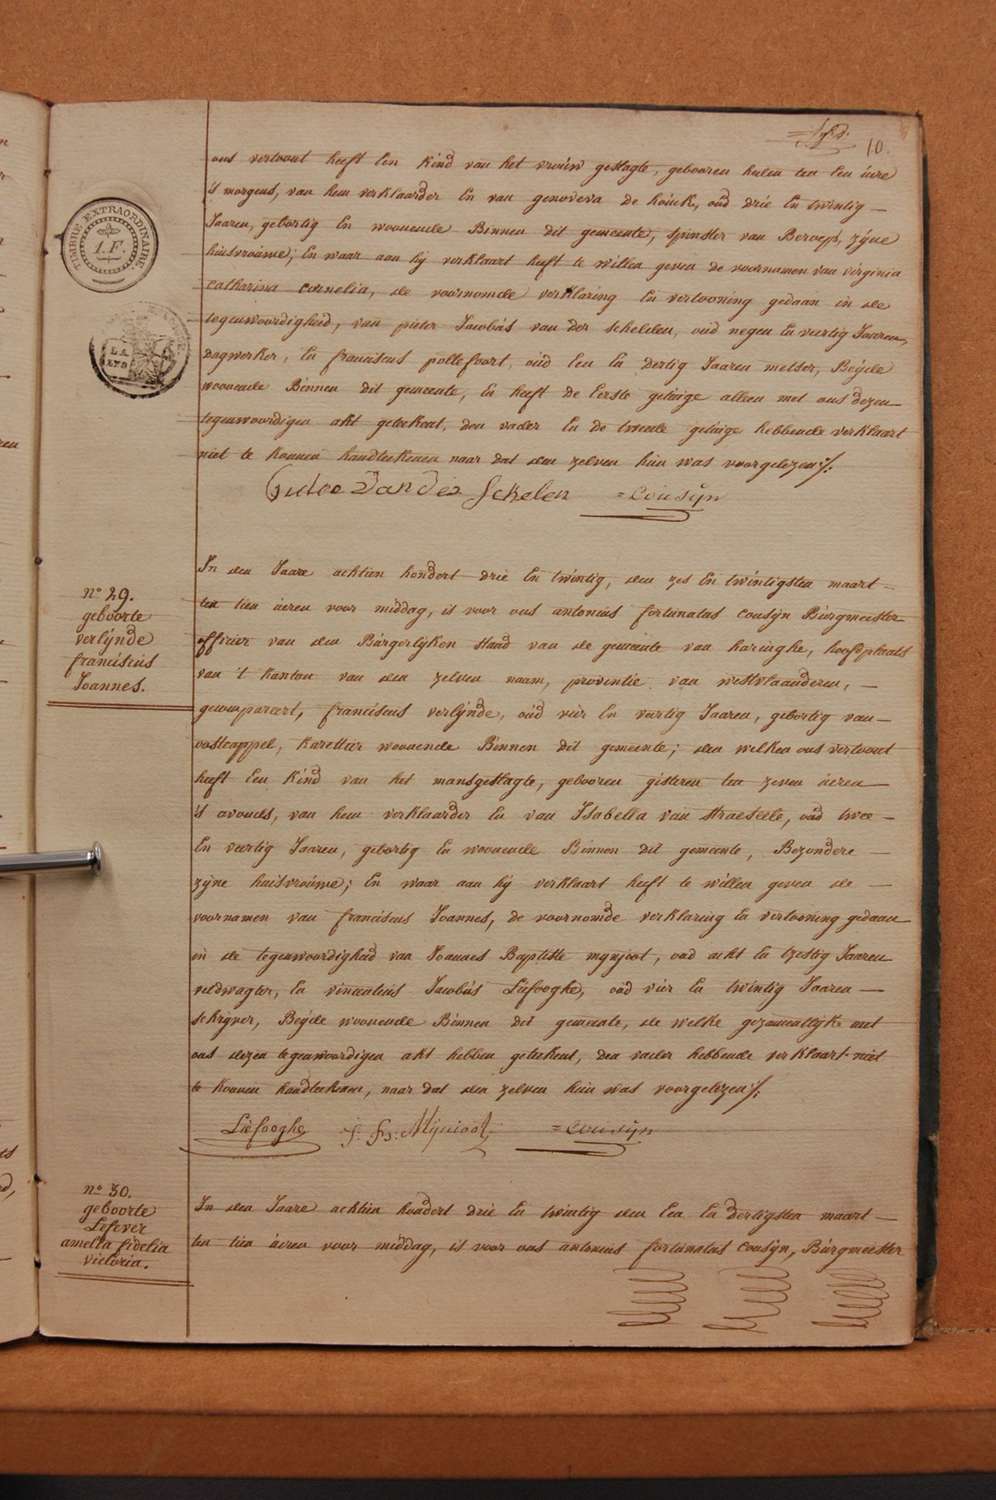 10.
ons vertoont heeft Een Kind van het vrouw geslagte, gebooren heden ten Een ùre
's morgens, van hem verklaarder En van genoveva de koùck, oud drie En twintig —
Jaaren, gebortig En woonende Binnen dit gemeente, spinster van Beroep, zijne
huisvroùwe; En waar aan hij verklaart heeft te willen geven de voornamen van virginia
catharina cornelia, de voornomde verklaring En vertooning gedaan in de
tegenwoordigheid, van pieter Jacobùs van der schelden, oùd negen En veertig Jaaren,
dagwerker, En franciscus pollefoort, oùd Een En dertig Jaaren metser, Beÿde
woonende Binnen dit gemeente, En heeft de Eerste getùige alleen met ons dezen
tegenwoordigen akt geteekent, den vader En de tweede getùige hebbende verklaart
niet te konnen handteekenen naar dat den zelven hùn was voorgelezen ⁄.
van der Schelen =Coùsÿn
TIMBRE EXTRAORDINAIRE.
1.F.
n° 29.
geboorte
verlÿnde
franciscùs
Joannes.
In den Jaare achtien hondert drie En twintig, den zes En twintigsten maart —
ten tien ùeren voor middag, is voor ons antonius fortunatus coùsÿn Bùrgmeester
officier van den Bùrgerlÿken Stand van de gemeente van haringhe, hoofdplaats
van 't kanton van den zelven naam, provintie van westvlaanderen, —
gecompareert, franciscus verlÿnde, oùd vier En veertig Jaaren, gebortig van —
oostcappel, karettier woonende Binnen dit gemeente; den welken ons vertoont
heeft Een Kind van het mansgeslagte, gebooren gisteren ten zeven ùeren
's avonds, van hem verklaarder En van Isabella van straeseele, oùd twee —
En veertig Jaaren, gebortig En woonende Binnen dit gemeente, Bezondere —
zÿne huisvroùwe; En waar aan hij verklaart heeft te willen geven de —
voornamen van franciscùs Joannes, de voornomde verklaring En vertooning gedaan
in de tegenwoordigheid van Joannes Baptiste mynjoot, oùd acht En tzestig Jaaren
veldwagter, En vincentius Jacobùs Liefooghe, oùd vier En twintig Jaaren —
schryver, Beÿde woonende Binnen dit gemeente, de welke gezamentlÿk met
ons dezen tegenwoordigen akt hebben geteekent, den vader hebbende verklaart niet
te konnen handteekenen, naar dat den zelven hùn was voorgelezen ⁄.
Liefooghe J: B: Mÿnioot =Coùsÿn
n° 30.
geboorte
Lefever
amelia fidelia
victoria.
In den Jaare achtien hondert drie En twintig den Een En dertigsten maart —
ten tien ùeren voor middag, is voor ons antonius fortunatus coùsÿn, Bùrgmeester